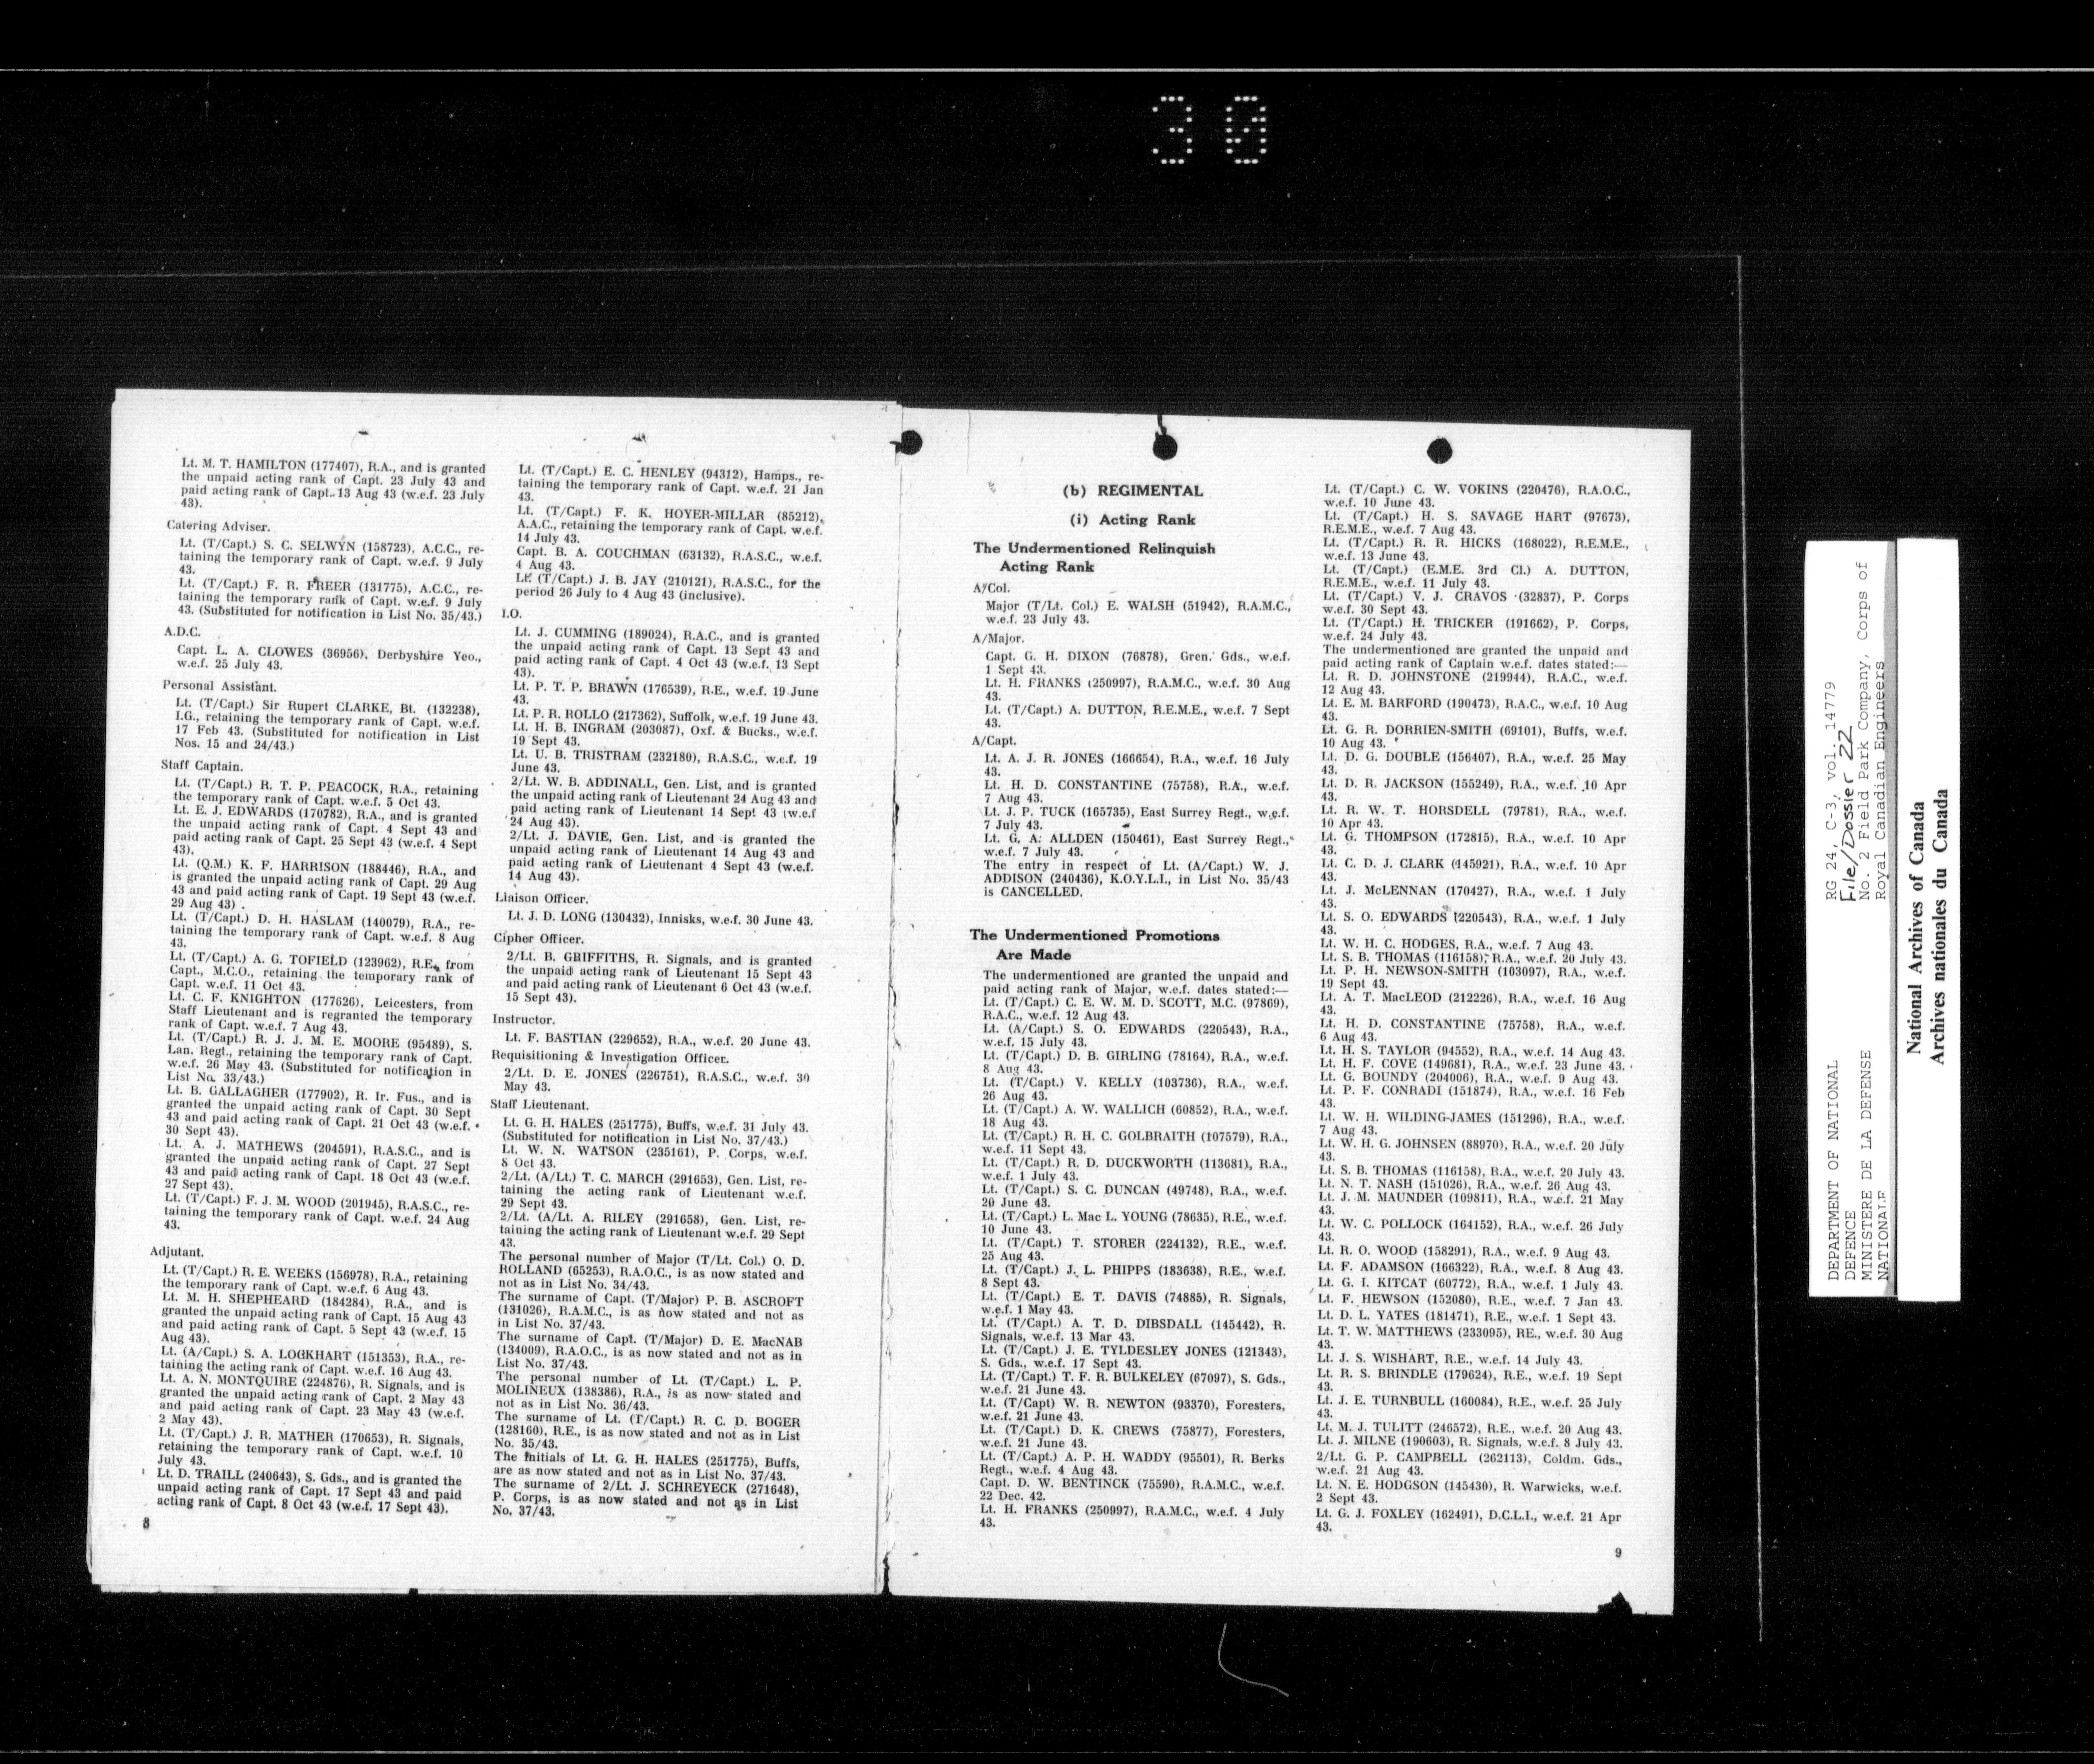 30
Lt. M. T. HAMILTON (177407), R.A., and is granted
the unpaid acting rank of Capt. 23 July 43 and
paid acting rank of Capt. 13 Aug 43 (w.e.f. 23 July
43).
Catering Adviser.
Lt. (T/Capt.) S. C. SELWYN (158723), A.C.C., re-
taining the temporary rank of Capt. w.e.f. 9 July
43.
Lt. (T/Capt.) F. R. FREER (131775), A.C.C., re-
taining the temporary rank of Capt. w.e.f. 9 July
43. (Substituted for notification in List No. 35/43.)
A.D.C.
Capt. L. A. CLOWES (36956), Derbyshire Yeo.,
w.e.f. 25 July 43.
Personal Assistant.
Lt. (T/Capt.) Sir Rupert CLARKE, Bt. (132238),
I.G., retaining the temporary rank of Capt. w.e.f.
17 Feb 43. (Substituted for notification in List
Nos. 15 and 24/43.)
Staff Captain.
Lt. (T/Capt.) R. T. P. PEACOCK, R.A., retaining
the temporary rank of Capt. w.e.f. 5 Oct 43.
Lt. E. J. EDWARDS (170782), R.A., and is granted
the unpaid acting rank of Capt. 4 Sept 43 and
paid acting rank of Capt. 25 Sept 43 (w.e.f. 4 Sept
43).
Lt. (Q.M.) K. F. HARRISON (188446), R.A., and
is granted the unpaid acting rank of Capt. 29 Aug
43 and paid acting rank of Capt. 19 Sept 43 (w.e.f.
29 Aug 43) .
Lt. (T/Capt.) D. H. HASLAM (140079), R.A., re-
taining the temporary rank of Capt. w.e.f. 8 Aug
43.
Lt. (T/Capt.) A. G. TOFIELD (123962), R.E., from
Capt., M.C.O., retaining the temporary rank of
Capt. w.e.f. 11 Oct 43.
Lt. C. F. KNIGHTON (177626), Leicesters, from
Staff Lieutenant and is regranted the temporary
rank of Capt. w.e.f. 7 Aug 43.
Lt. (T/Capt.) R. J. J. M. E. MOORE (95489), S.
Lan. Regt., retaining the temporary rank of Capt.
w.e.f. 26 May 43. (Substituted for notification in
List No. 33/43.)
Lt. B. GALLAGHER (177902), R. Ir. Fus., and is
granted the unpaid acting rank of Capt. 30 Sept
43 and paid acting rank of Capt. 21 Oct 43 (w.e.f.
30 Sept 43).
Lt. A. J. MATHEWS (204591), R.A.S.C., and is
granted the unpaid acting rank of Capt. 27 Sept
43 and paid acting rank of Capt. 18 Oct 43 (w.e.f.
27 Sept 43).
Lt. (T/Capt.) F. J. M. WOOD (201945), R.A.S.C., re-
taining the temporary rank of Capt. w.e.f. 24 Aug
43.
Adjutant.
Lt. (T/Capt.) R. E. WEEKS (156978), R.A., retaining
the temporary rank of Capt. w.e.f. 6 Aug 43.
Lt. M. H. SHEPHEARD (184284), R.A., and is
granted the unpaid acting rank of Capt. 15 Aug 43
and paid acting rank of Capt. 5 Sept 43 (w.e.f. 15
Aug 43).
Lt. (A/Capt.) S. A. LOCKHART (151353), R.A., re-
taining the acting rank of Capt. w.e.f. 16 Aug 43.
Lt. A. N. MONTQUIRE (224876), R. Signals, and is
granted the unpaid acting rank of Capt. 2 May 43
and paid acting rank of Capt. 23 May 43 (w.e.f.
2 May 43).
Lt. (T/Capt.) J. R. MATHER (170653), R. Signals,
retaining the temporary rank of Capt. w.e.f. 10
July 43.
Lt. D. TRAILL (240643), S. Gds., and is granted the
unpaid acting rank of Capt. 17 Sept 43 and paid
acting rank of Capt. 8 Oct 43 (w.e.f. 17 Sept 43).
8
Lt. (T/Capt.) E. C. HENLEY (94312), Hamps., re-
taining the temporary rank of Capt. w.e.f. 21 Jan
43.
Lt. (T/Capt.) F. K. HOYER-MILLAR (85212),
A.A.C., retaining the temporary rank of Capt. w.e.f.
14 July 43.
Capt. B. A. COUCHMAN (63132), R.A.S.C., w.e.f.
4 Aug 43.
Lt. (T/Capt.) J. B. JAY (210121), R.A.S.C., for the
period 26 July to 4 Aug 43 (inclusive).
I.O.
Lt. J. CUMMING (189024), R.A.C., and is granted
the unpaid acting rank of Capt. 13 Sept 43 and
paid acting rank of Capt. 4 Oct 43 (w.e.f. 13 Sept
43).
Lt. P. T. P. BRAWN (176539), R.E., w.e.f. 19 June
43.
Lt. P. R. ROLLO (217362), Suffolk, w.e.f. 19 June 43.
Lt. H. B. INGRAM (203087), Oxf. & Bucks., w.e.f.
19 Sept 43.
Lt. U. B. TRISTRAM (232180), R.A.S.C., w.e.f. 19
June 43.
2/Lt. W. B. ADDINALL, Gen. List, and is granted
the unpaid acting rank of Lieutenant 24 Aug 43 and
paid acting rank of Lieutenant 14 Sept 43 (w.e.f
24 Aug 43).
2/Lt. J. DAVIE, Gen. List, and is granted the
unpaid acting rank of Lieutenant 14 Aug 43 and
paid acting rank of Lieutenant 4 Sept 43 (w.e.f.
14 Aug 43).
Liaison Officer.
Lt. J. D. LONG (130432), Innisks, w.e.f. 30 June 43.
Cipher Officer.
2/Lt. B. GRIFFITHS, R. Signals, and is granted
the unpaid acting rank of Lieutenant 15 Sept 43
and paid acting rank of Lieutenant 6 Oct 43 (w.e.f.
15 Sept 43).
Instructor.
Lt. F. BASTIAN (229652), R.A., w.e.f. 20 June 43.
Requisitioning & Investigation Officer.
2/Lt. D. E. JONES (226751), R.A.S.C., w.e.f. 30
May 43.
Staff Lieutenant.
Lt. G. H. HALES (251775), Buffs, w.e.f. 31 July 43.
(Substituted for notification in List No. 37/43.)
Lt. W. N. WATSON (235161), P. Corps, w.e.f.
8 Oct 43.
2/Lt. (A/Lt.) T. C. MARCH (291653), Gen. List, re-
taining the acting rank of Lieutenant w.e.f.
29 Sept 43.
2/Lt. (A/Lt. A. RILEY (291658), Gen. List, re-
taining the acting rank of Lieutenant w.e.f. 29 Sept
43.
The personal number of Major (T/Lt. Col.) O. D.
ROLLAND (65253), R.A.O.C., is as now stated and
not as in List No. 34/43.
The surname of Capt. (T/Major) P. B. ASCROFT
(131026), R.A.M.C., is as now stated and not as
in List No. 37/43.
The surname of Capt. (T/Major) D. E. MacNAB
(134009), R.A.O.C., is as now stated and not as in
List No. 37/43.
The personal number of Lt. (T/Capt.) L. P.
MOLINEUX (138386), R.A., is as now stated and
not as in List No. 36/43.
The surname of Lt. (T/Capt.) R. C. D. BOGER
(128160), R.E., is as now stated and not as in List
No. 35/43.
The initials of Lt. G. H. HALES (251775), Buffs,
are as now stated and not as in List No. 37/43.
The surname of 2/Lt. J. SCHREYECK (271648),
P. Corps, is as now stated and not as in List
No. 37/43.
(b) REGIMENTAL
(i) Acting Rank
The Undermentioned Relinquish
Acting Rank
A/Col.
Major (T/Lt. Col.) E. WALSH (51942), R.A.M.C.,
w.e.f. 23 July 43.
A/Major.
Capt. G. H. DIXON (76878), Gren. Gds., w.e.f.
1 Sept 43.
Lt. H. FRANKS (250997), R.A.M.C., w.e.f. 30 Aug
43.
Lt. (T/Capt.) A. DUTTON, R.E.M.E., w.e.f. 7 Sept
43.
A/Capt.
Lt. A. J. R. JONES (166654), R.A., w.e.f. 16 July
43.
Lt. H. D. CONSTANTINE (75758), R.A., w.e.f.
7 Aug 43.
Lt. J. P. TUCK (165735), East Surrey Regt., w.e.f.
7 July 43.
Lt. G. A. ALLDEN (150461), East Surrey Regt.,
w.e.f. 7 July 43.
The entry in respect of Lt. (A/Capt.) W. J.
ADDISON (240436), K.O.Y.L.I., in List No. 35/43
is CANCELLED.
The Undermentioned Promotions
Are Made
The undermentioned are granted the unpaid and
paid acting rank of Major, w.e.f. dates stated:—
Lt. (T/Capt.) C. E. W. M. D. SCOTT, M.C. (97869),
R.A.C., w.e.f. 12 Aug 43.
Lt. (A/Capt.) S. O. EDWARDS (220543), R.A.,
w.e.f. 15 July 43.
Lt. (T/Capt.) D. B. GIRLING (78164), R.A., w.e.f.
8 Aug 43.
Lt. (T/Capt.) V. KELLY (103736), R.A., w.e.f.
26 Aug 43.
Lt. (T/Capt.) A. W. WALLICH (60852), R.A., w.e.f.
18 Aug 43.
Lt. (T/Capt.) R. H. C. GOLBRAITH (107579), R.A.,
w.e.f. 11 Sept 43.
Lt. (T/Capt.) R. D. DUCKWORTH (113681), R.A.,
w.e.f. 1 July 43.
Lt. (T/Capt.) S. C. DUNCAN (49748), R.A., w.e.f.
20 June 43.
Lt. (T/Capt.) L. Mac L. YOUNG (78635), R.E., w.e.f.
10 June 43.
Lt. (T/Capt.) T. STORER (224132), R.E., w.e.f.
25 Aug 43.
Lt. (T/Capt.) J. L. PHIPPS (183638), R.E., w.e.f.
8 Sept 43.
Lt. (T/Capt.) E. T. DAVIS (74885), R. Signals,
w.e.f. 1 May 43.
Lt. (T/Capt.) A. T. D. DIBSDALL (145442), R.
Signals, w.e.f. 13 Mar 43.
Lt. (T/Capt.) J. E. TYLDESLEY JONES (121343),
S. Gds., w.e.f. 17 Sept 43.
Lt. (T/Capt.) T. F. R. BULKELEY (67097), S. Gds.,
w.e.f. 21 June 43.
Lt. (T/Capt) W. R. NEWTON (93370), Foresters,
w.e.f. 21 June 43.
Lt. (T/Capt.) D. K. CREWS (75877), Foresters,
w.e.f. 21 June 43.
Lt. (T/Capt.) A. P. H. WADDY (95501), R. Berks
Regt., w.e.f. 4 Aug 43.
Capt. D. W. BENTINCK (75590), R.A.M.C., w.e.f.
22 Dec. 42.
Lt. H. FRANKS (250997), R.A.M.C., w.e.f. 4 July
43.
Lt. (T/Capt.) C. W. VOKINS (220476), R.A.O.C.,
w.e.f. 10 June 43.
Lt. (T/Capt.) H. S. SAVAGE HART (97673),
R.E.M.E., w.e.f. 7 Aug 43.
Lt. (T/Capt.) R. R. HICKS (168022), R.E.M.E.,
w.e.f. 13 June 43.
Lt. (T/Capt.) (E.M.E. 3rd Cl.) A. DUTTON,
R.E.M.E., w.e.f. 11 July 43.
Lt. (T/Capt.) V. J. CRAVOS (32837), P. Corps
w.e.f. 30 Sept 43.
Lt. (T/Capt.) H. TRICKER (191662), P. Corps,
w.e.f. 24 July 43.
The undermentioned are granted the unpaid and
paid acting rank of Captain w.e.f. dates stated:—
Lt. R. D. JOHNSTONE (219944), R.A.C., w.e.f.
12 Aug 43.
Lt. E. M. BARFORD (190473), R.A.C., w.e.f. 10 Aug
43.
Lt. G. R. DORRIEN-SMITH (69101), Buffs, w.e.f.
10 Aug 43.
Lt. D. G. DOUBLE (156407), R.A., w.e.f. 25 May
43.
Lt. D. R. JACKSON (155249), R.A., w.e.f. 10 Apr
43.
Lt. R. W. T. HORSDELL (79781), R.A., w.e.f.
10 Apr 43.
Lt. G. THOMPSON (172815), R.A., w.e.f. 10 Apr
43.
Lt. C. D. J. CLARK (145921), R.A., w.e.f. 10 Apr
43.
Lt. J. McLENNAN (170427), R.A., w.e.f. 1 July
43.
Lt. S. O. EDWARDS (220543), R.A., w.e.f. 1 July
43.
Lt. W. H. C. HODGES, R.A., w.e.f. 7 Aug 43.
Lt. S. B. THOMAS (116158), R.A., w.e.f. 20 July 43.
Lt. P. H. NEWSON-SMITH (103097), R.A., w.e.f.
19 Sept 43.
Lt. A. T. MacLEOD (212226), R.A., w.e.f. 16 Aug
43.
Lt. H. D. CONSTANTINE (75758), R.A., w.e.f.
6 Aug 43.
Lt. H. S. TAYLOR (94552), R.A., w.e.f. 14 Aug 43.
Lt. H. F. COVE (149681), R.A., w.e.f. 23 June 43.
Lt. G. BOUNDY (204006), R.A., w.e.f. 9 Aug 43.
Lt. P. F. CONRADI (151874), R.A., w.e.f. 16 Feb
43.
Lt. W. H. WILDING-JAMES (151296), R.A., w.e.f.
7 Aug 43.
Lt. W. H. G. JOHNSEN (88970), R.A., w.e.f. 20 July
43.
Lt. S. B. THOMAS (116158), R.A., w.e.f. 20 July 43.
Lt. N. T. NASH (151026), R.A., w.e.f. 26 Aug 43.
Lt. J. M. MAUNDER (109811), R.A., w.e.f. 21 May
43.
Lt. W. C. POLLOCK (164152), R.A., w.e.f. 26 July
43.
Lt. R. O. WOOD (158291), R.A., w.e.f. 9 Aug 43.
Lt. F. ADAMSON (166322), R.A., w.e.f. 8 Aug 43.
Lt. G. I. KITCAT (60772), R.A., w.e.f. 1 July 43.
Lt. F. HEWSON (152080), R.E., w.e.f. 7 Jan 43.
Lt. D. L. YATES (181471), R.E., w.e.f. 1 Sept 43.
Lt. T. W. MATTHEWS (233095), RE., w.e.f. 30 Aug
43.
Lt. J. S. WISHART, R.E., w.e.f. 14 July 43.
Lt. R. S. BRINDLE (179624), R.E., w.e.f. 19 Sept
43.
Lt. J. E. TURNBULL (160084), R.E., w.e.f. 25 July
43.
Lt. M. J. TULITT (246572), R.E., w.e.f. 20 Aug 43.
Lt. J. MILNE (190603), R. Signals, w.e.f. 8 July 43.
2/Lt. G. P. CAMPBELL (262113), Coldm. Gds.,
w.e.f. 21 Aug 43.
Lt. N. E. HODGSON (145430), R. Warwicks, w.e.f.
2 Sept 43.
Lt. G. J. FOXLEY (162491), D.C.L.I., w.e.f. 21 Apr
43.
9
DEPARTMENT OF NATIONAL
DEFENCE
MINISTERE DE LA DEFENSE
NATIONALE
RG 24, C-3, vol. 14779
File/Dossier 22
No. 2 Field Park Company, Corps of
Royal Canadian Engineers
National Archives of Canada
Archives nationales du Canada